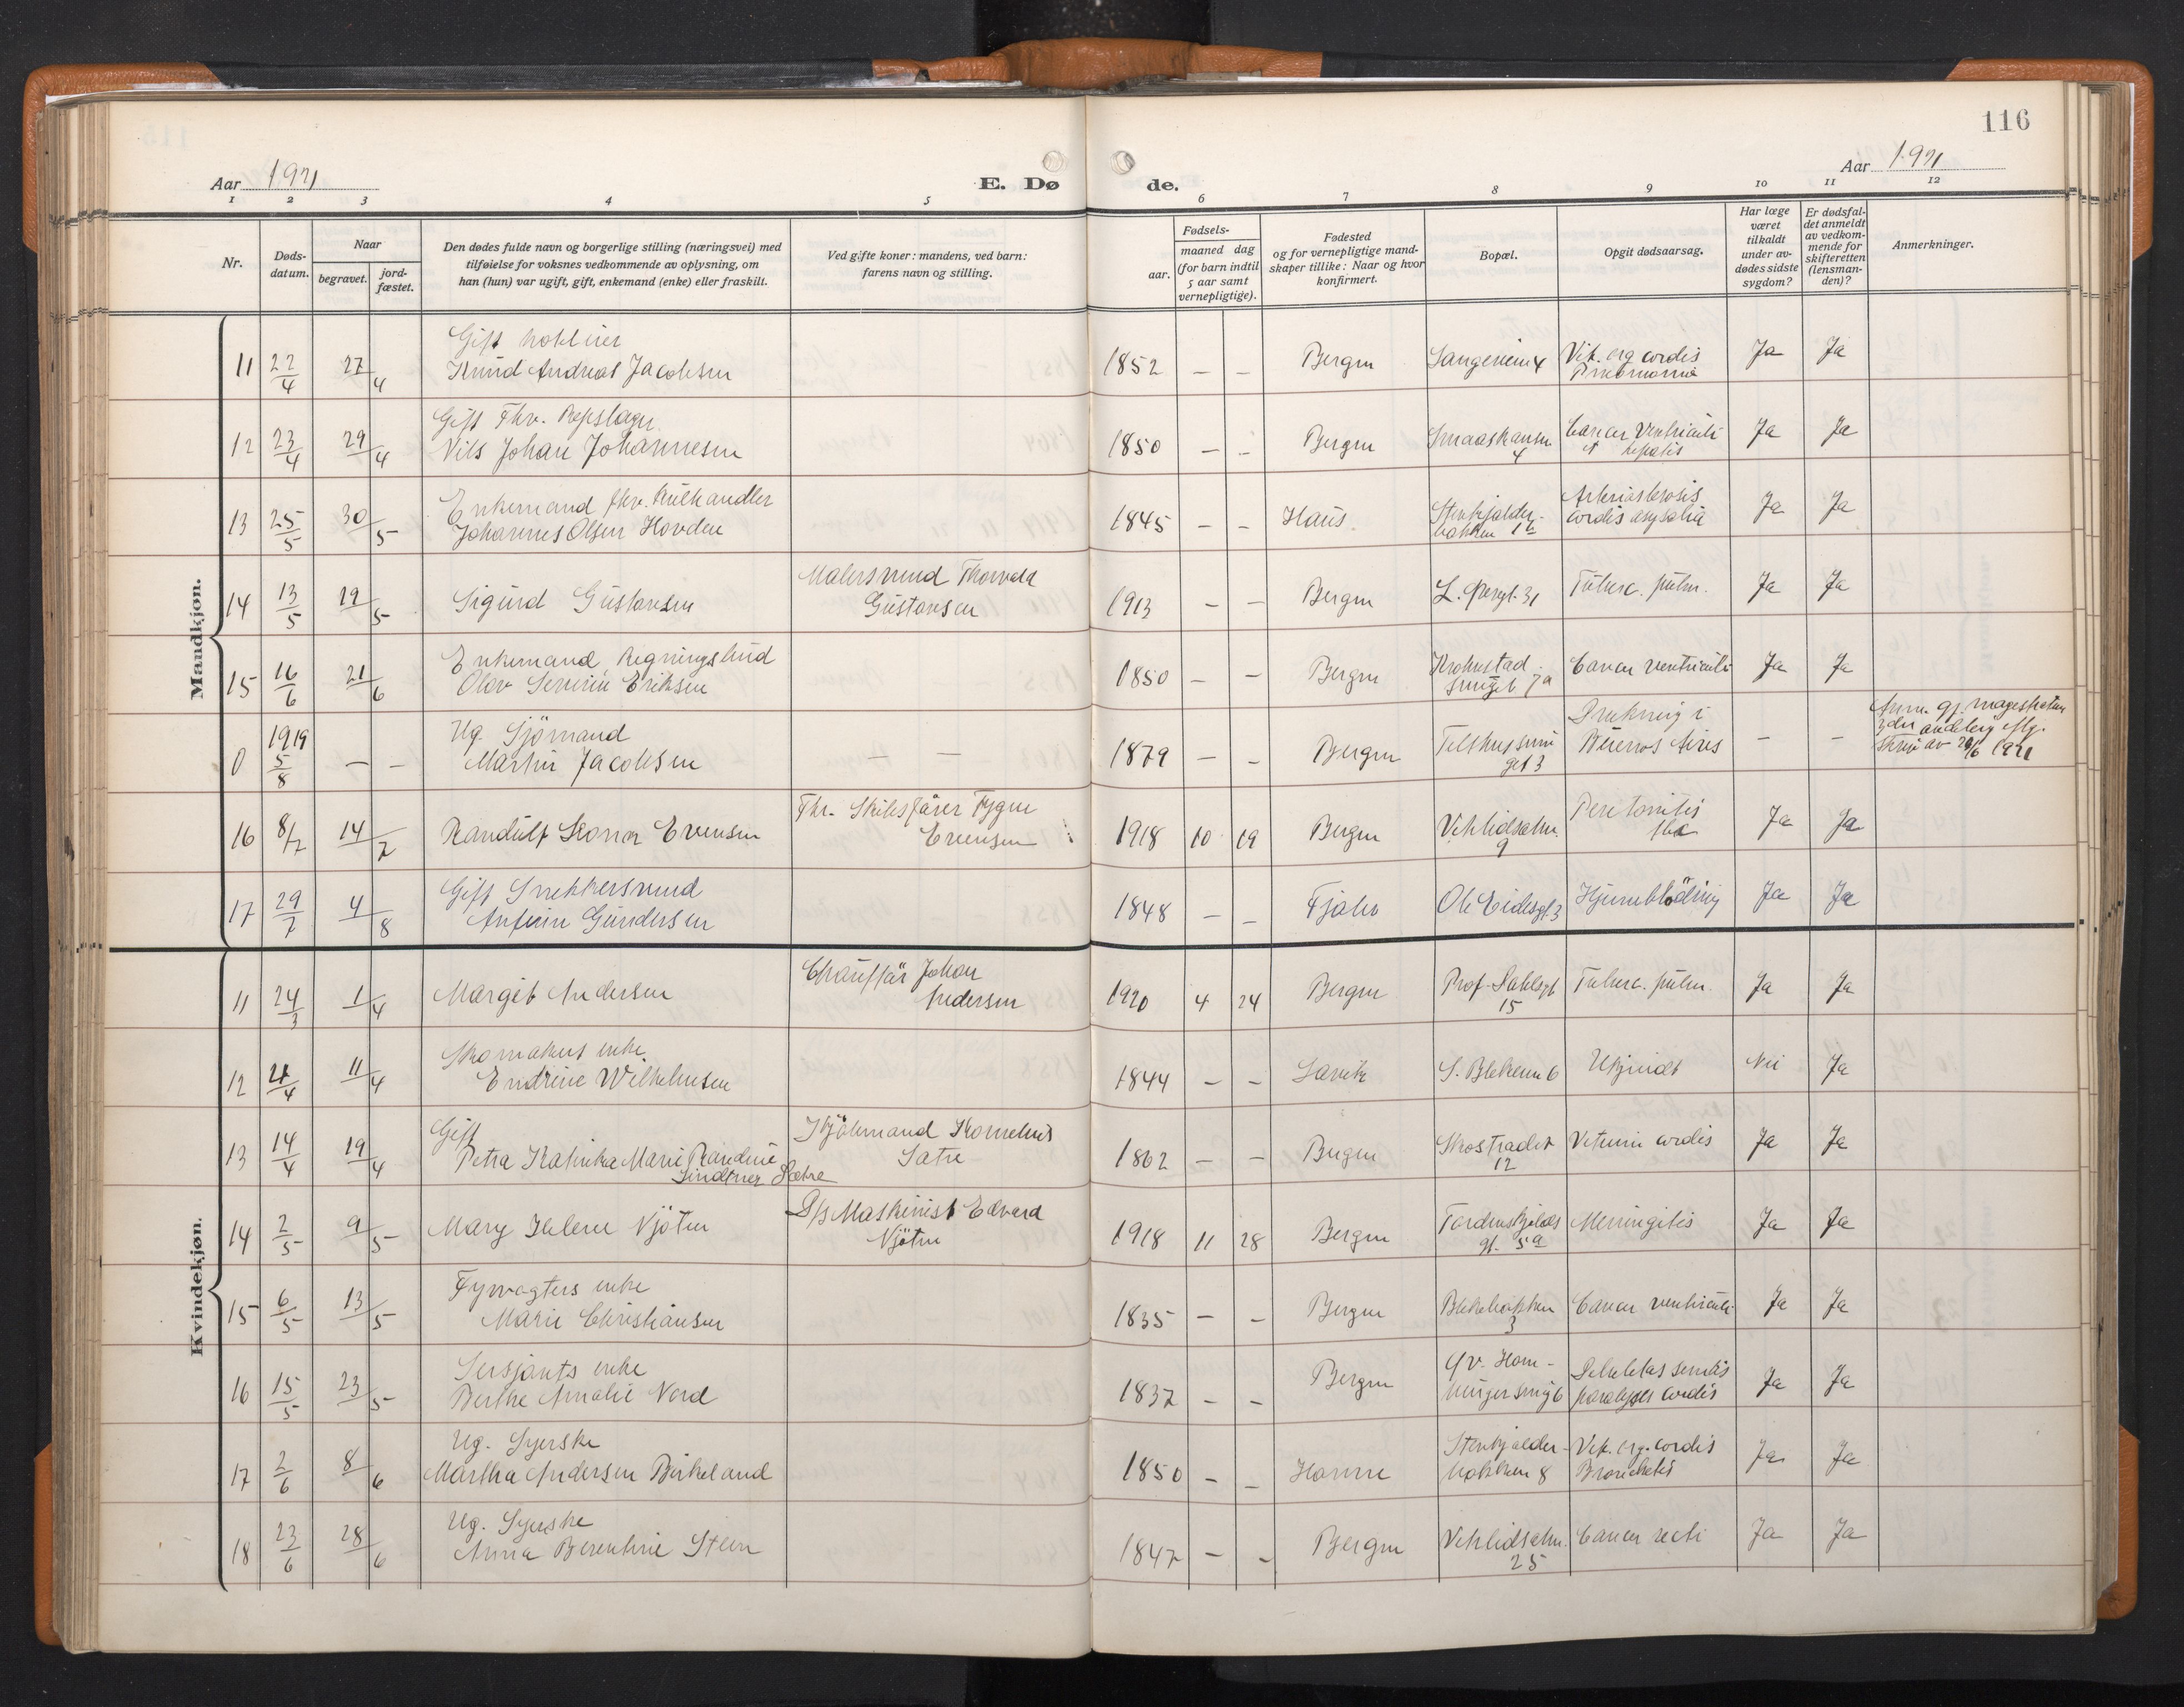 116
Aar 1921
E. Døde.
Aar 1921
1 2 3 4 5 6 7 8 9 10 11 12
Nr.
Døds-
datum.
Naar
begravet.
jord-
fæstet.
Den dødes fulde navn og borgerlige stilling (næringsvei) med
tilføielse for voksnes vedkommende av oplysning, om
han (hun) var ugift, gift, enkemand (enke) eller fraskilt.
Ved gifte koner: mandens, ved barn:
farens navn og stilling.
Fødsels-
aar.
maaned dag
(for barn indtil
5 aar samt
vernepligtige).
Fødested
og for vernepligtige mand-
skaper tillike: Naar og hvor
konfirmert.
Bopæl.
Opgit dødsaarsag.
Har læge
været
tilkaldt
under av-
dødes sidste
sygdom?
Er dødsfal-
det anmeldt
av vedkom-
mende for
skifteretten
(lensman-
den)?
Anmerkninger.
Mandkjøn.
Gift
11 22/4 27/4 Knud Andreas Jacobsen 1852 – – Bergen 4 Vit. org cordis Pneumonia Ja Ja
Gift Fhv. Repslager
12 23/4 29/4 Nils Johan Johannesen 1850 – – Bergen Smaaskansen 4 Cancer Ventriculi et hepatis Ja Ja
Enkemand fhv. Kulhandler
13 25/5 30/5 Johannes Olsen Hovden 1845 – – Haus Stenkjelder-bakken 1b cordis Ja Ja
14 13/5 19/5 Sigurd Gustavsen Malersvend Thorvald Gustavsen 1913 – – Bergen 31 Tuberc. pulm. Ja Ja
Enkemand, Regningsbud
15 16/6 21/6 Olav Severin Eriksen 1850 – – Bergen Krohnstad-smuget 7a Cancer ventriculi Ja Ja
Ug. Sjömand
0 1919 5/8 – – Martin Jacobsen – – 1879 – – Bergen 3 Drukning i Buenos Aires – – Anm. gj. magistraten 1921
16 8/7 14/7 Randulf Evensen Fhv. Skibsfører Tygve Evensen 1918 10 19 Bergen 9 Peretonitis Ja Ja
Gift Snekkersvend
17 29/7 4/8 Anfinn Gundersen 1848 – – Fjaler Ole Eidesgt. 3 Hjerneblödning Ja Ja
Kvindekjøn.
11 24/3 1/4 Margit Andersen Chauffär Johan Andersen 1920 4 24 Bergen Prof. Dahlsgt 15 Tuberc. pulm. Ja Ja
Skomakers enke
12 4/4 11/4 Endrine Wilhelmsen 1844 – – Lavik S. Blekeun 6 Ukjendt Nei Ja
Gift
13 14/4 19/4 Petra Katrika Marie Randine Lindtner Sætre Kjöbmand Kornelius Satre 1862 – – Bergen Skostrædet 12 Vitium cordis Ja Ja
14 2/5 9/5 Mary Helene Njöten D/s Maskinist Edvard Njöten 1918 11 28 Bergen Tordenskjolds gt. 5a Meningitis Ja Ja
Fyrvagters enke
15 6/5 13/5 Marie Christiansen 1835 – – Bergen Blekebakken 3 Cancer ventriculi Ja Ja
Sersjants enke
16 15/5 23/5 Berthe Amalie Nord 1837 – – Bergen 6 Debilitas senilis paralyses cordis Ja Ja
Ug. Syerske
17 2/6 8/6 Martha Andersen Birkeland 1850 – – Hamre Stenkjelder-bakken 8 Vit. org. cordis Bronchitis Ja Ja
Ug. Syerske
18 23/6 28/6 Anna Berentine Steen 1847 – – Bergen 25 Cancer recti Ja Ja